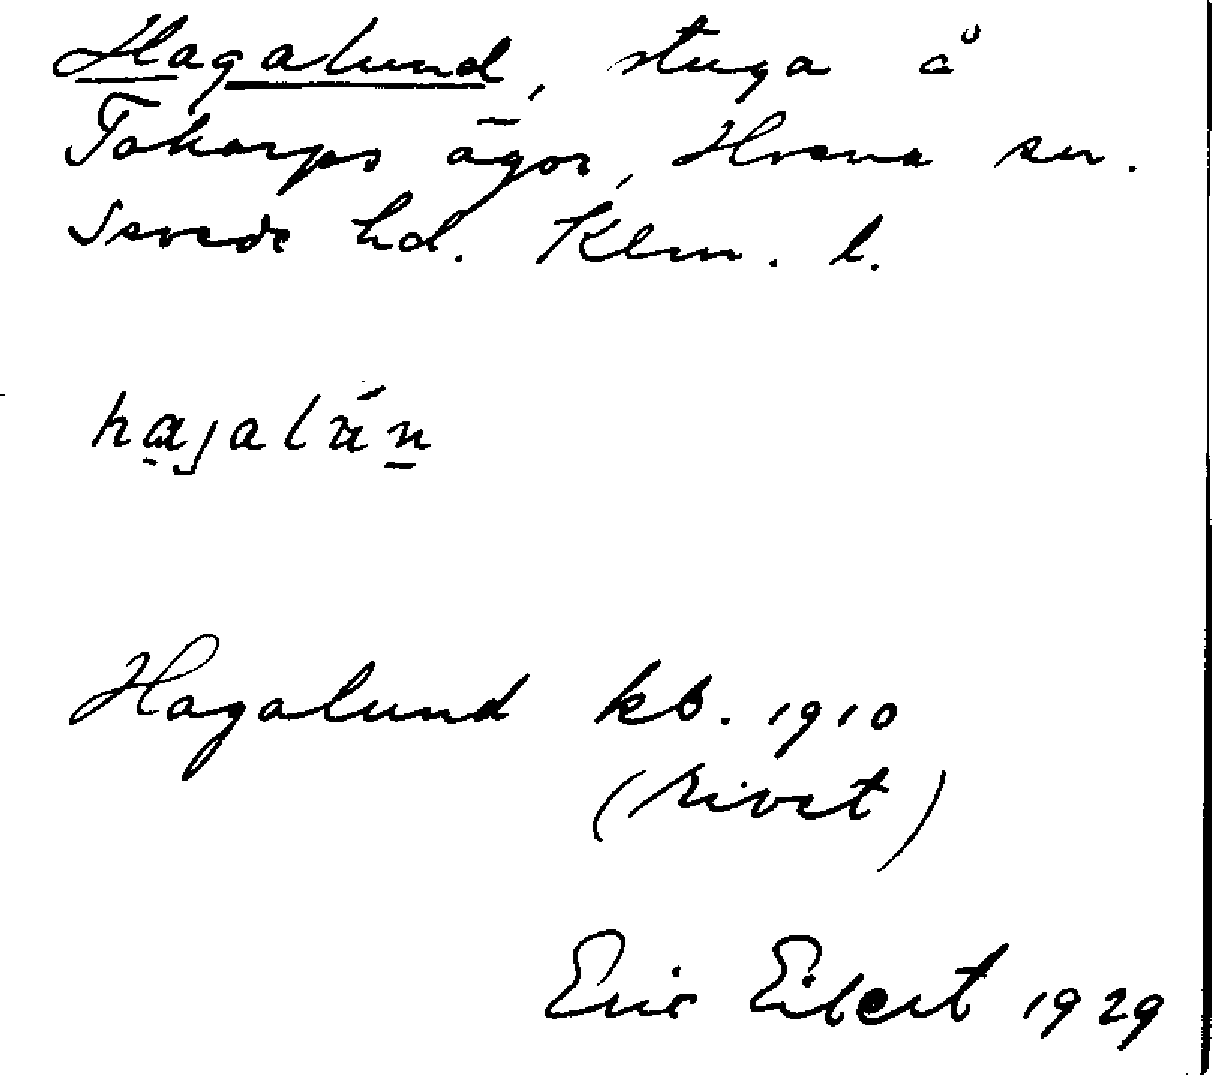 Hagalund, stuga å
Tokarps ägor, Hvena sn.
Sevede hd. Klm. l.
Hagalund kb. 1910
(rivet)
Eric Eilert 1929